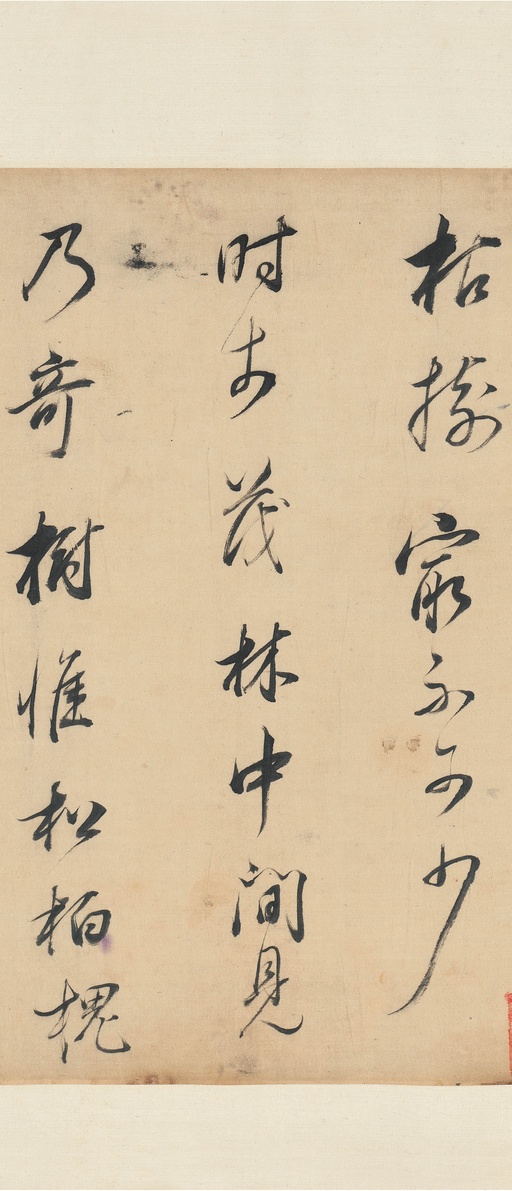 枯樹最不可少
时於茂林中間見
乃奇樹惟松柏槐